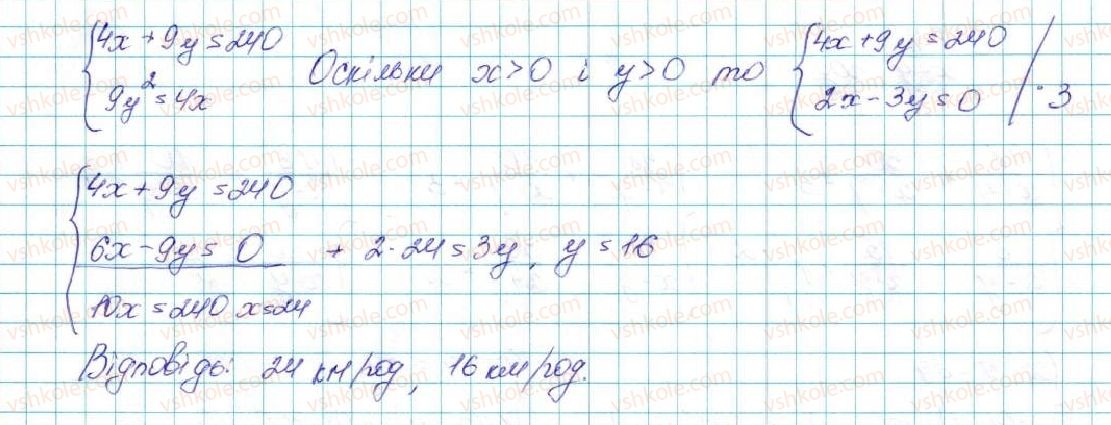 {4x + 9y = 240
9y² = 4x Оскільки x > 0 і y > 0 то {4x + 9y = 240
2x - 3y = 0 / · 3
{4x + 9y = 240
6x - 9y = 0 + 2 · 24 = 3y, y = 16
10x = 240 x = 24
Відповідь: 24 км/год, 16 км/год.